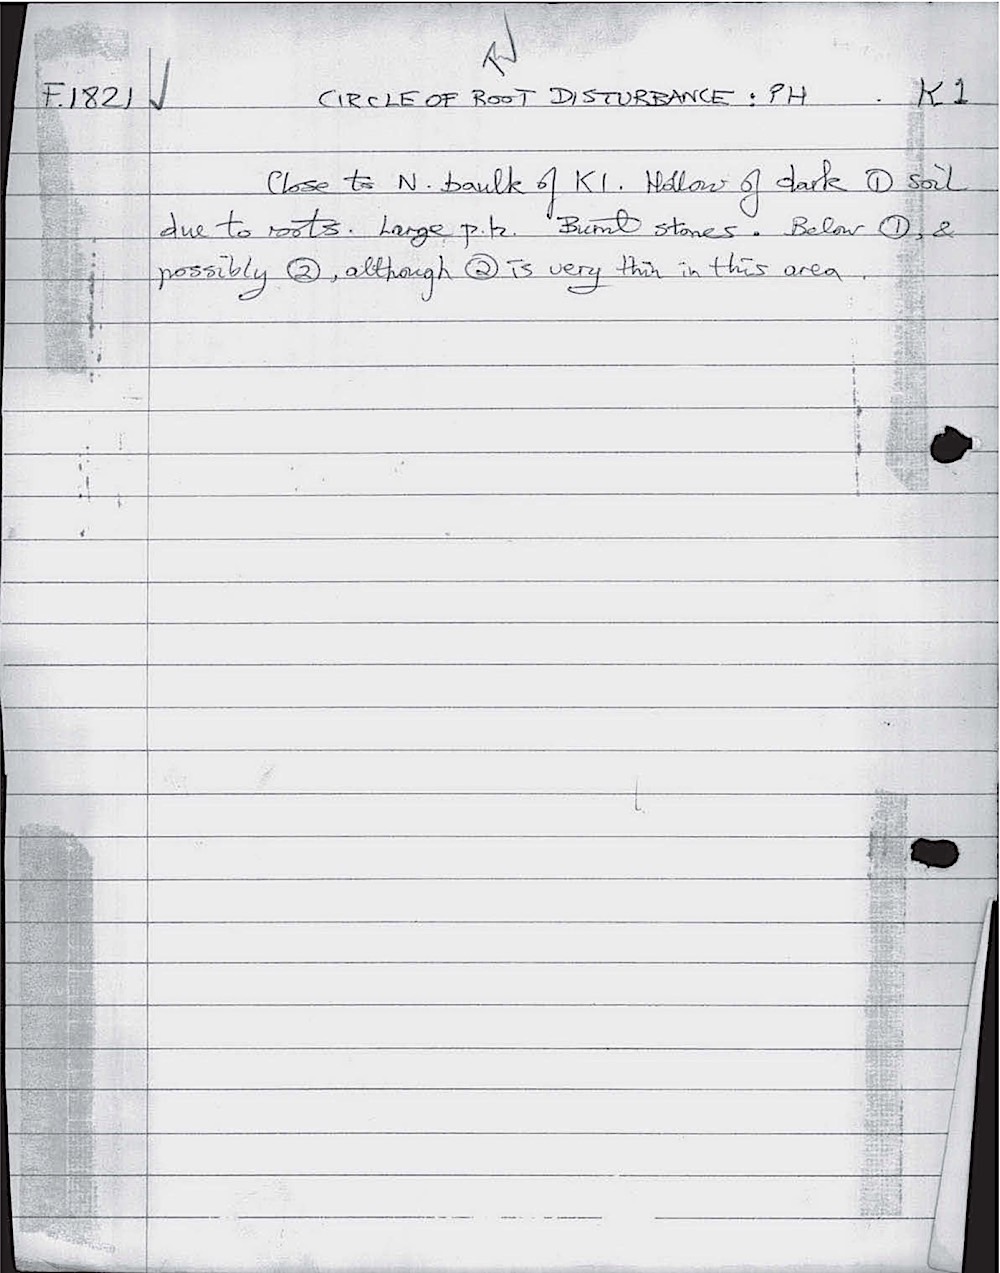 F.1821 CIRCLE OF ROOT DISTURBANCE : PH . K1
Close to N. baulk of K1. Hollow of dark ① soil
due to roots. Large p.h. Burnt stones. Below ①, &
possibly ②, although ② is very thin in this area.